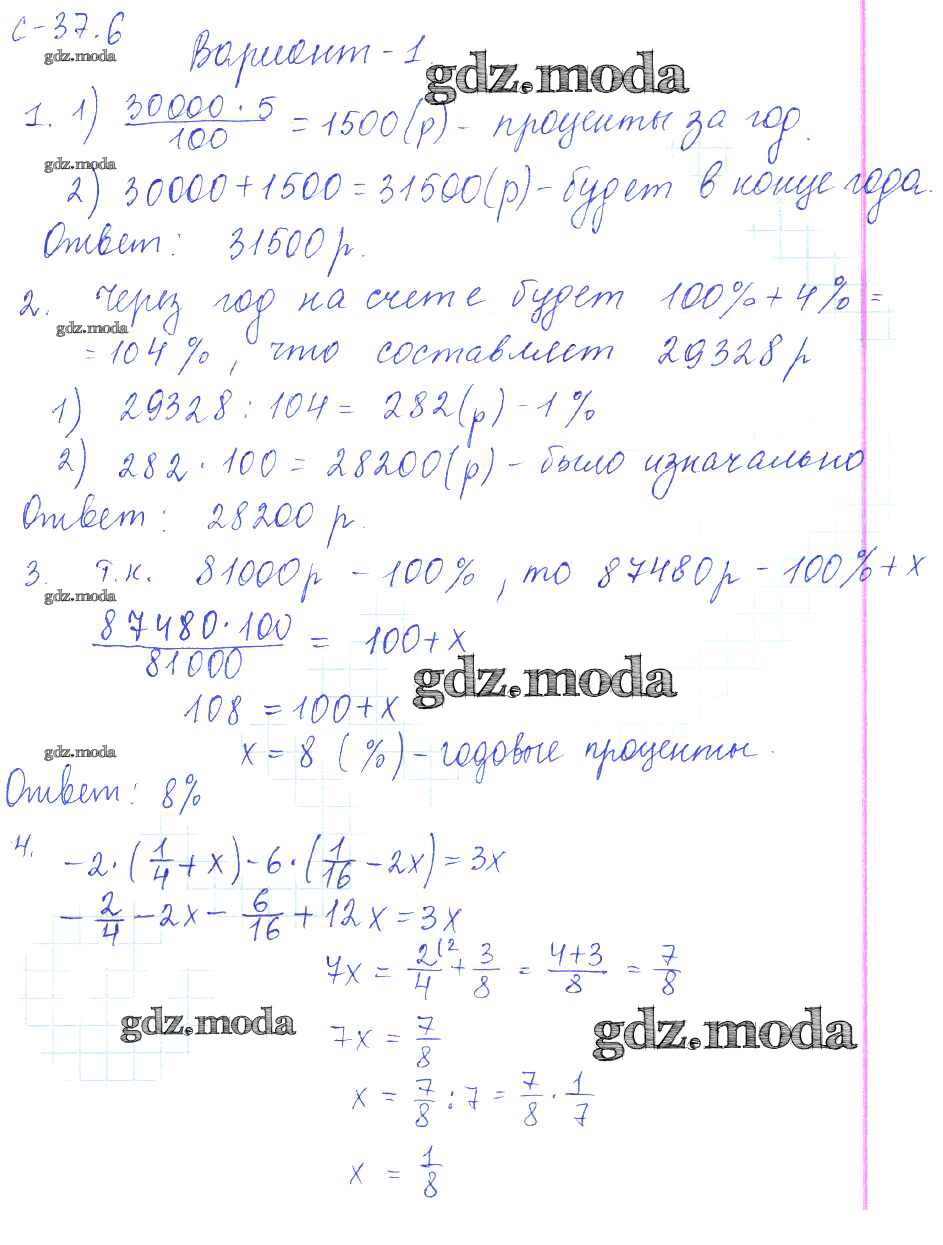 С-37.6
gdz.moda
Вариант-1.
gdz.moda
1. 1) 30000·5/100 = 1500(р) - проценты за год.
gdz.moda
2) 30000+1500=31500(р)-будет в конце года.
Ответ: 31500р.
2. Через год на счете будет 100%+4%=
gdz.moda
=104%, что составляет 29328р
1) 29328:104= 282(р)-1%
2) 282·100=28200(р)-было изначально
Ответ: 28200р.
3. т.к. 81000р - 100%, то 87480р-100%+x
gdz.moda
87480·100/81000 = 100+x
gdz.moda
108 = 100+x
gdz.moda
x = 8 (%)-годовые проценты.
Ответ: 8%
4. -2·(1/4+x)-6·(1/16-2x)=3x
-2/4-2x-6/16+12x=3x
7x = 2(2/4+3/8 = 4+3/8 = 7/8
gdz.moda
gdz.moda
7x = 7/8
x = 7/8:7=7/8·1/7
x = 1/8